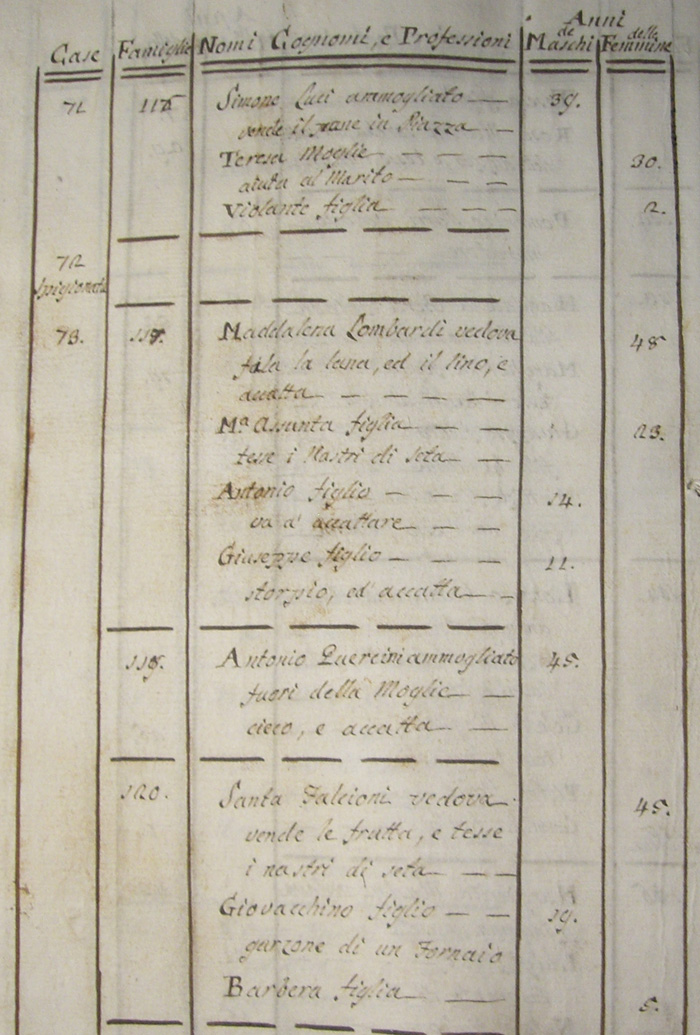 Anni
Case Famiglie Nomi Cognomi, e Professioni de Maschi delle Femmine
71 Simone Luci ammogliato 39.
vende il pane in Piazza
Teresa Moglie 30.
aiuta al Marito
Violante figlia 2.
72
spigionata
73. Maddalena Lombardi vedova 48
fila la lana, ed il lino, e
accatta
Mª Assunta figlia 23.
tesse i Nastri di seta
Antonio figlio 14.
va a' accattare
Giuseppe figlio 11.
storpio, ed accatta
119. Antonio Quercini ammogliato 45.
fuori della Moglie
cieco, e accatta
120. Santa Falcioni vedova 45.
vende le frutta, e tesse
i nastri di seta
Giovacchino figlio 19.
garzone di un Fornaio
Barbera figlia 5.